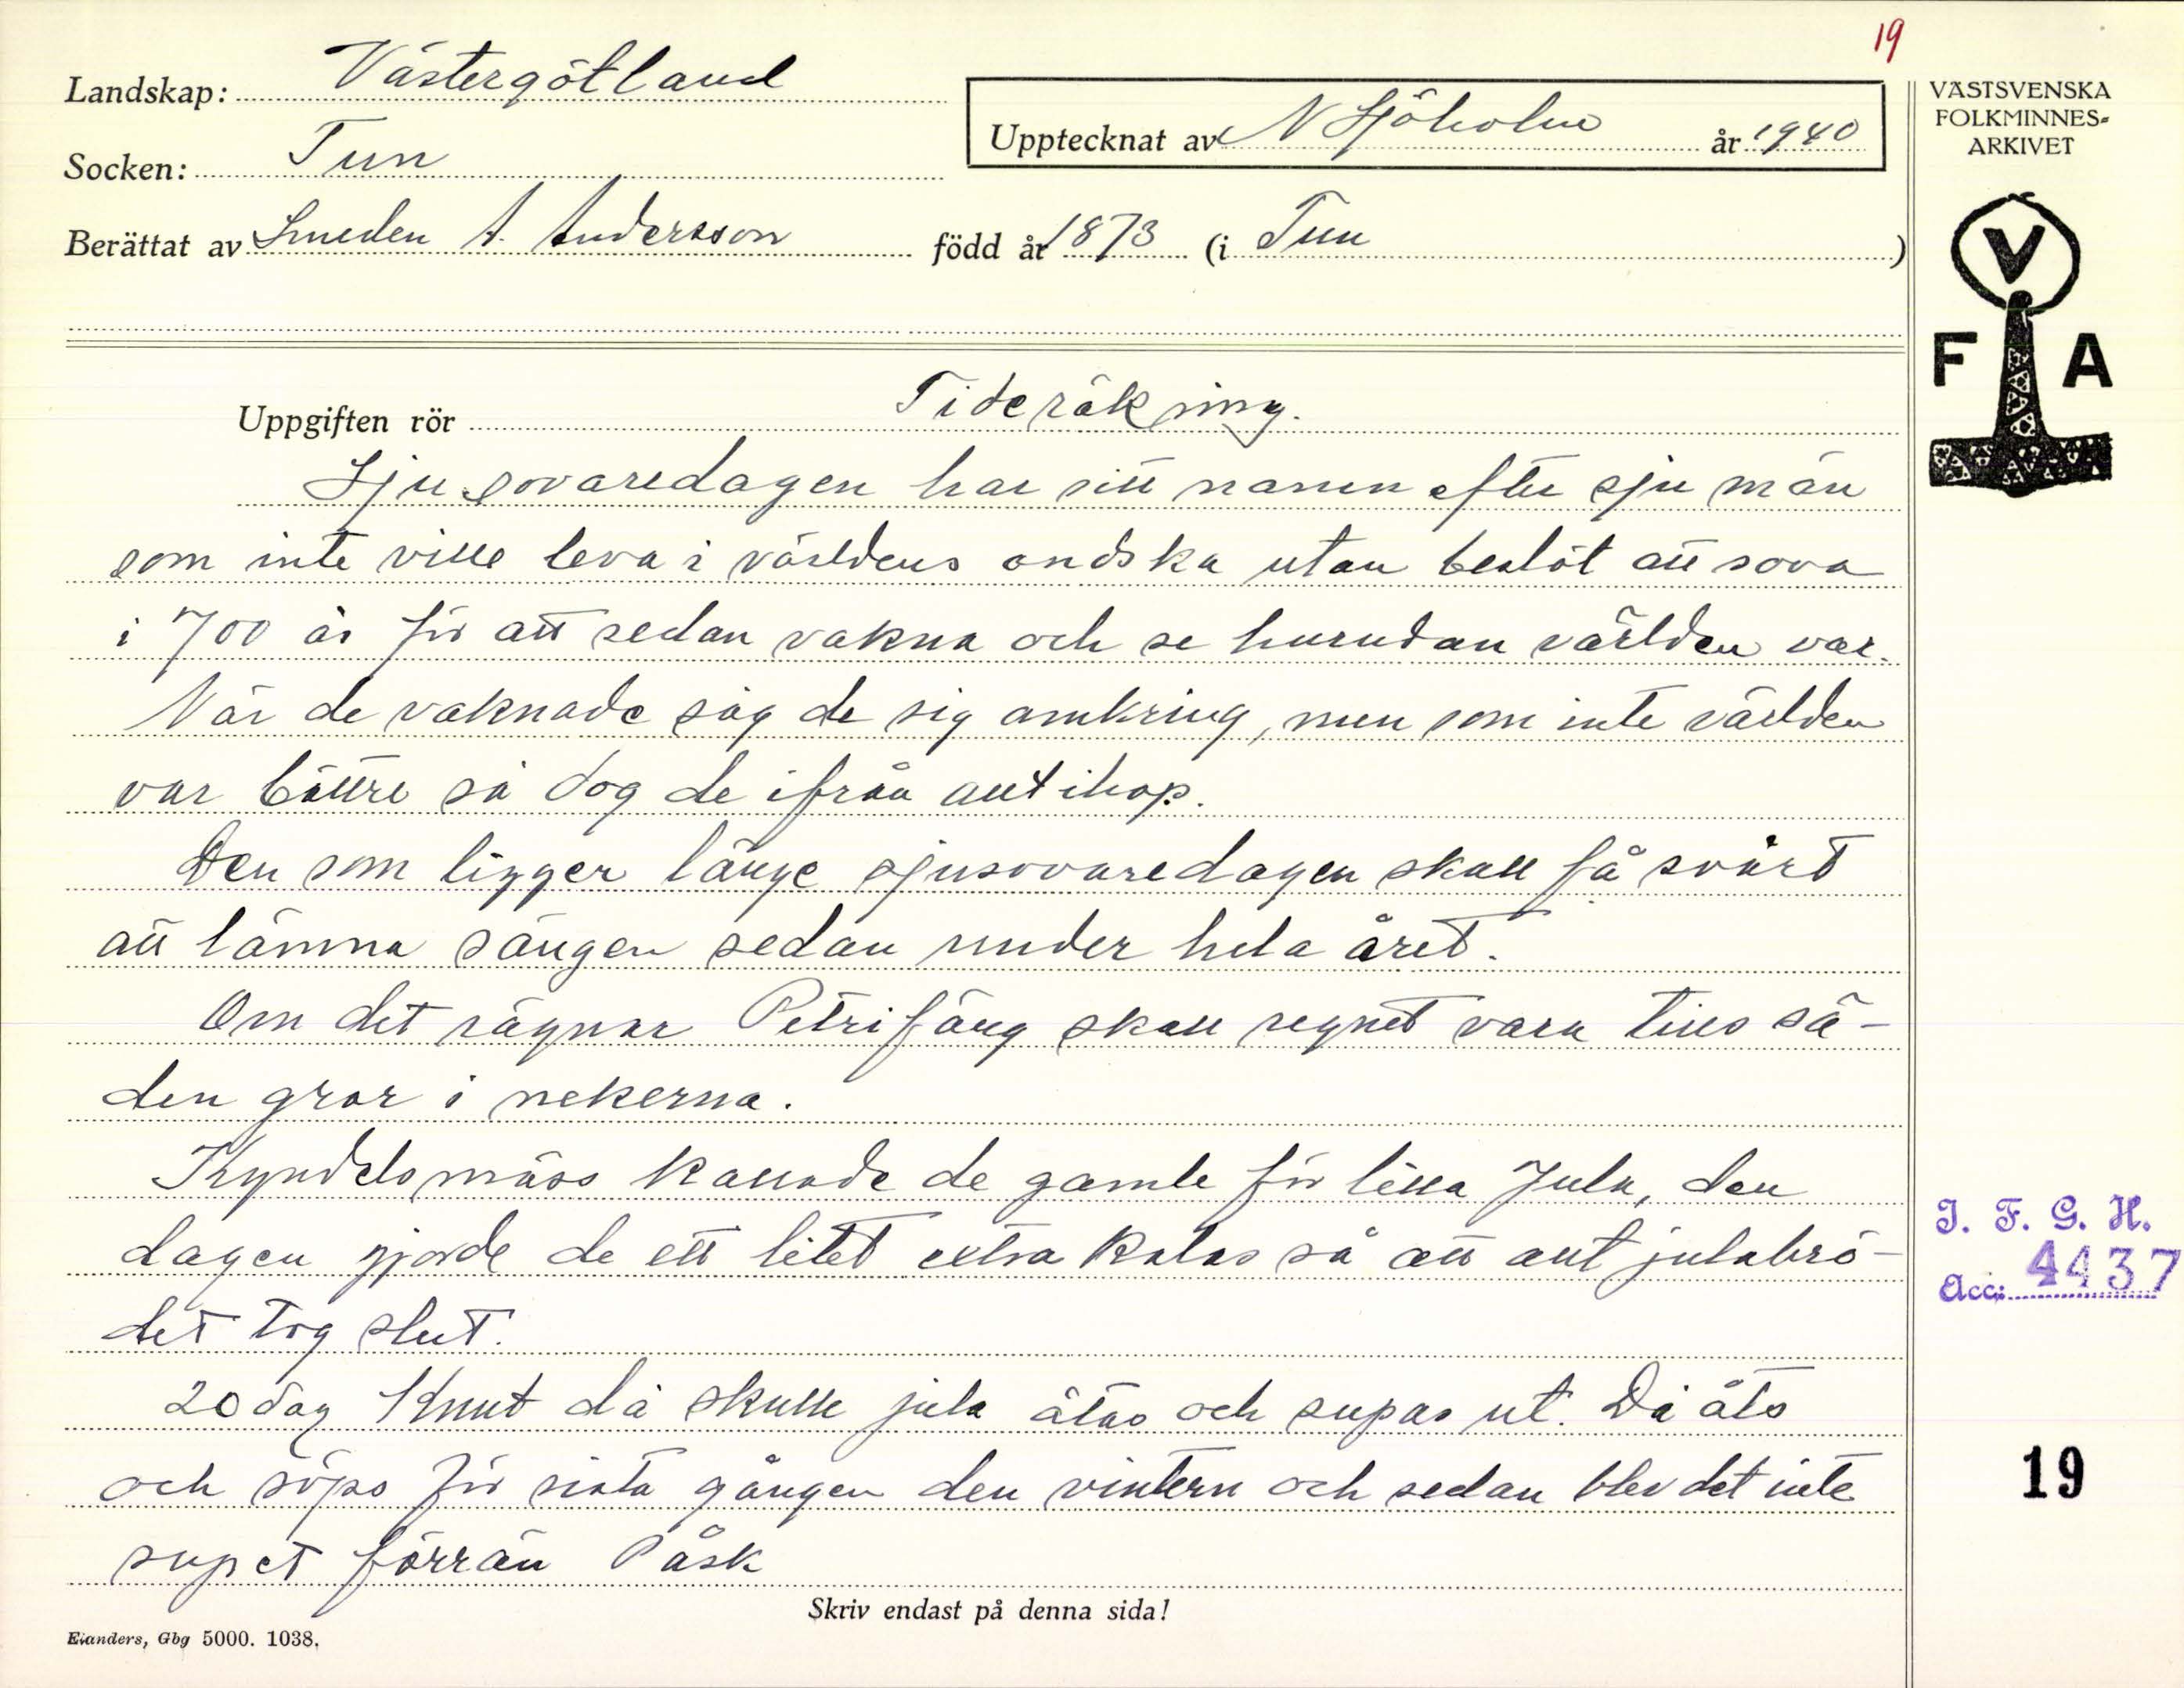 19
Landskap: Västergötland
Socken: Tun
Upptecknat av N Sjöholm år 1940
Berättat av Smeden A. Andersson född år 1873 (i Tun )
VÄSTSVENSKA
FOLKMINNES-
ARKIVET
V
F A
Uppgiften rör Tideräkning.
Sju sovaredagen har sitt namn efter sju män
som inte ville leva i världens ondska utan beslöt att sova
i 700 år för att sedan vakna och se hurudan världen var.
När de vaknade såg de sig omkring, men som inte världen
var bättre så dog de ifrån allt ihop.
Den som ligger länge sjusovaredagen skall få svårt
att lämna sängen sedan under hela året.
Om det rägnar Petrifäng skall regnet vara tills sä-
den gror i nekerna.
Kyndelsmäss kallade de gamle för lilla Jula, den
dagen gjorde de ett litet extra kalas så att allt julabrö-
det tog slut.
20 dag Knut då skulle jula ätas och supas ut. Då åts
och söps för sista gången den vintern och sedan blev det inte
supet förrän Påsk
I. F. G. H.
Acc: 4437
19
Skriv endast på denna sida!
Elanders, Gbg 5000. 1038.